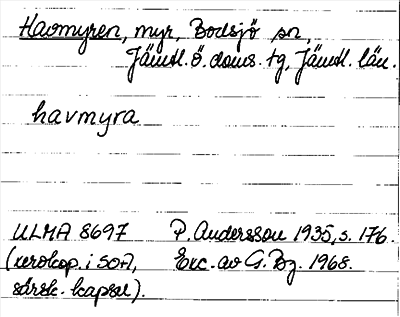 Havmyren, myr, Bodsjö sn,
Jämtl. ö. doms. tg, Jämtl. län.
havmyra
ULMA 8697 P. Andersson 1935, s. 176.
(xerokop. i SOA, Exc. av G. Bz. 1968.
särsk. kapsel).